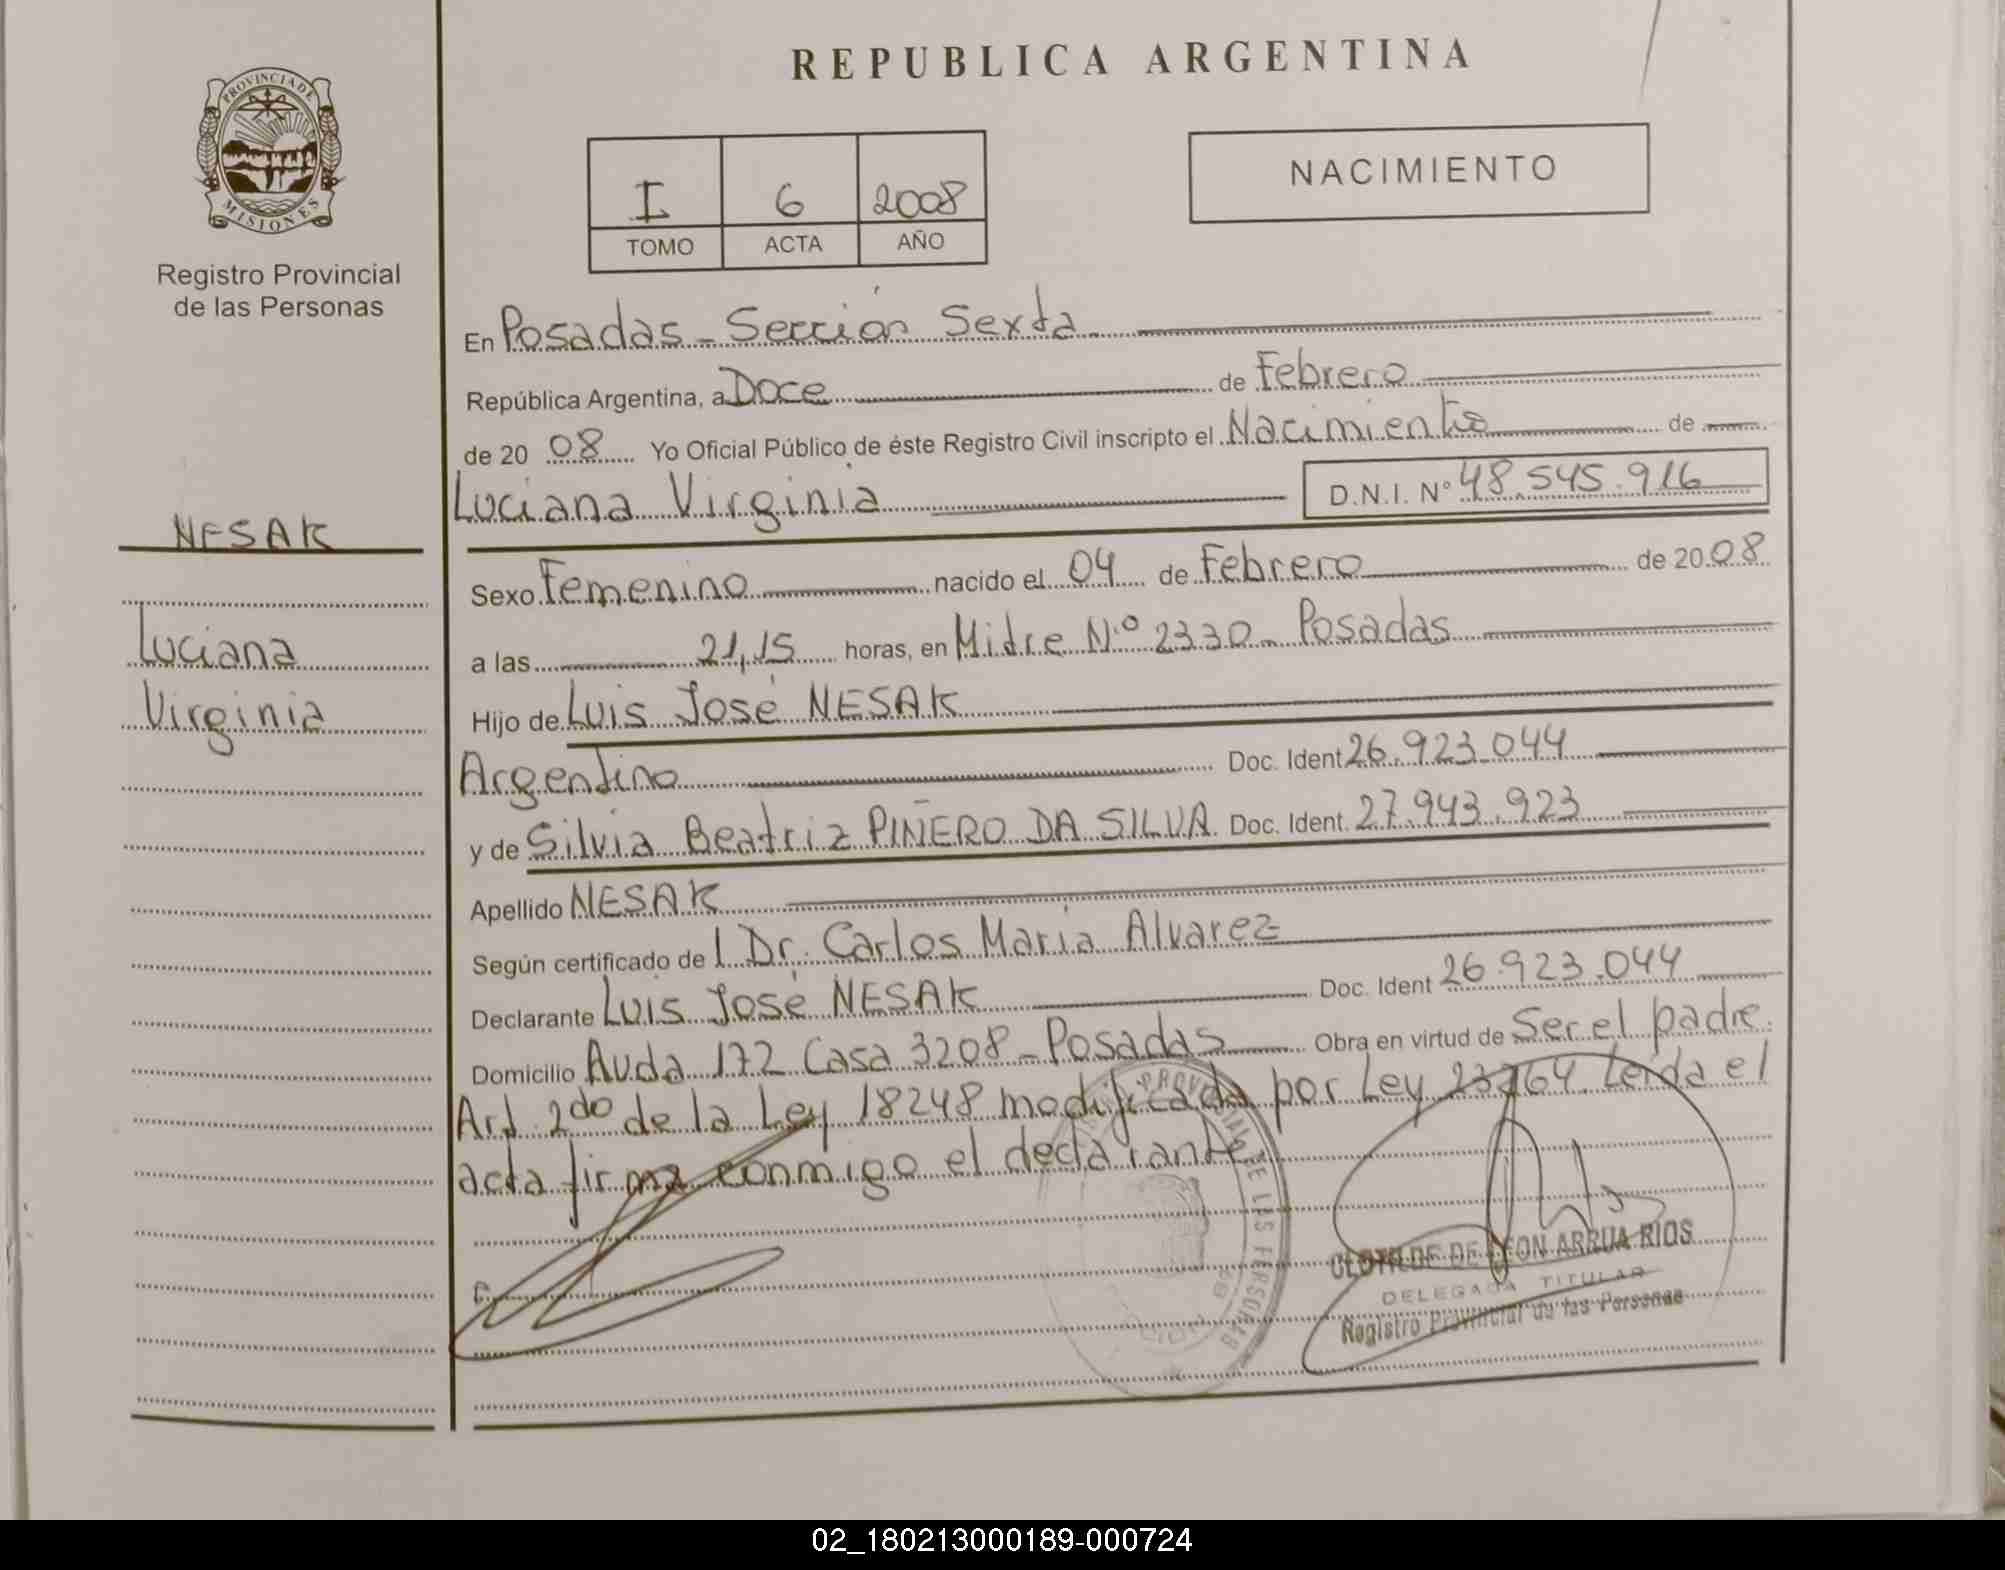 REPUBLICA ARGENTINA
PROVINCIA DE
MISIONES
Registro Provincial
de las Personas
I 6 2008
TOMO ACTA AÑO
NACIMIENTO
En Posadas - Sección Sexta
República Argentina, a Doce de Febrero
de 2008 Yo Oficial Público de éste Registro Civil inscripto el Nacimiento de
Luciana Virginia D.N.I. N° 48.545.916
NESAK
Luciana
Virginia
Sexo Femenino nacido el 04 de Febrero de 2008
a las 21,15 horas, en Mitre N.º 2330 - Posadas
Hijo de Luis José NESAK
Argentino Doc. Ident 26.923.044
y de Silvia Beatriz PIÑERO DA SILVA Doc. Ident. 27.943.923
Apellido NESAK
Según certificado de l Dr. Carlos María Alvarez
Declarante Luis José NESAK Doc. Ident 26.923.044
Domicilio Avda 172 Casa 3208 - Posadas Obra en virtud de Ser el padre.
Art 2do de la Ley 18248 modificada por Ley 23264. Leida el
acta firma conmigo el declarante
CLOTILDE DE LEON ARRUA RIOS
DELEGADA TITULAR
Registro Provincial de las Personas
02_180213000189-000724